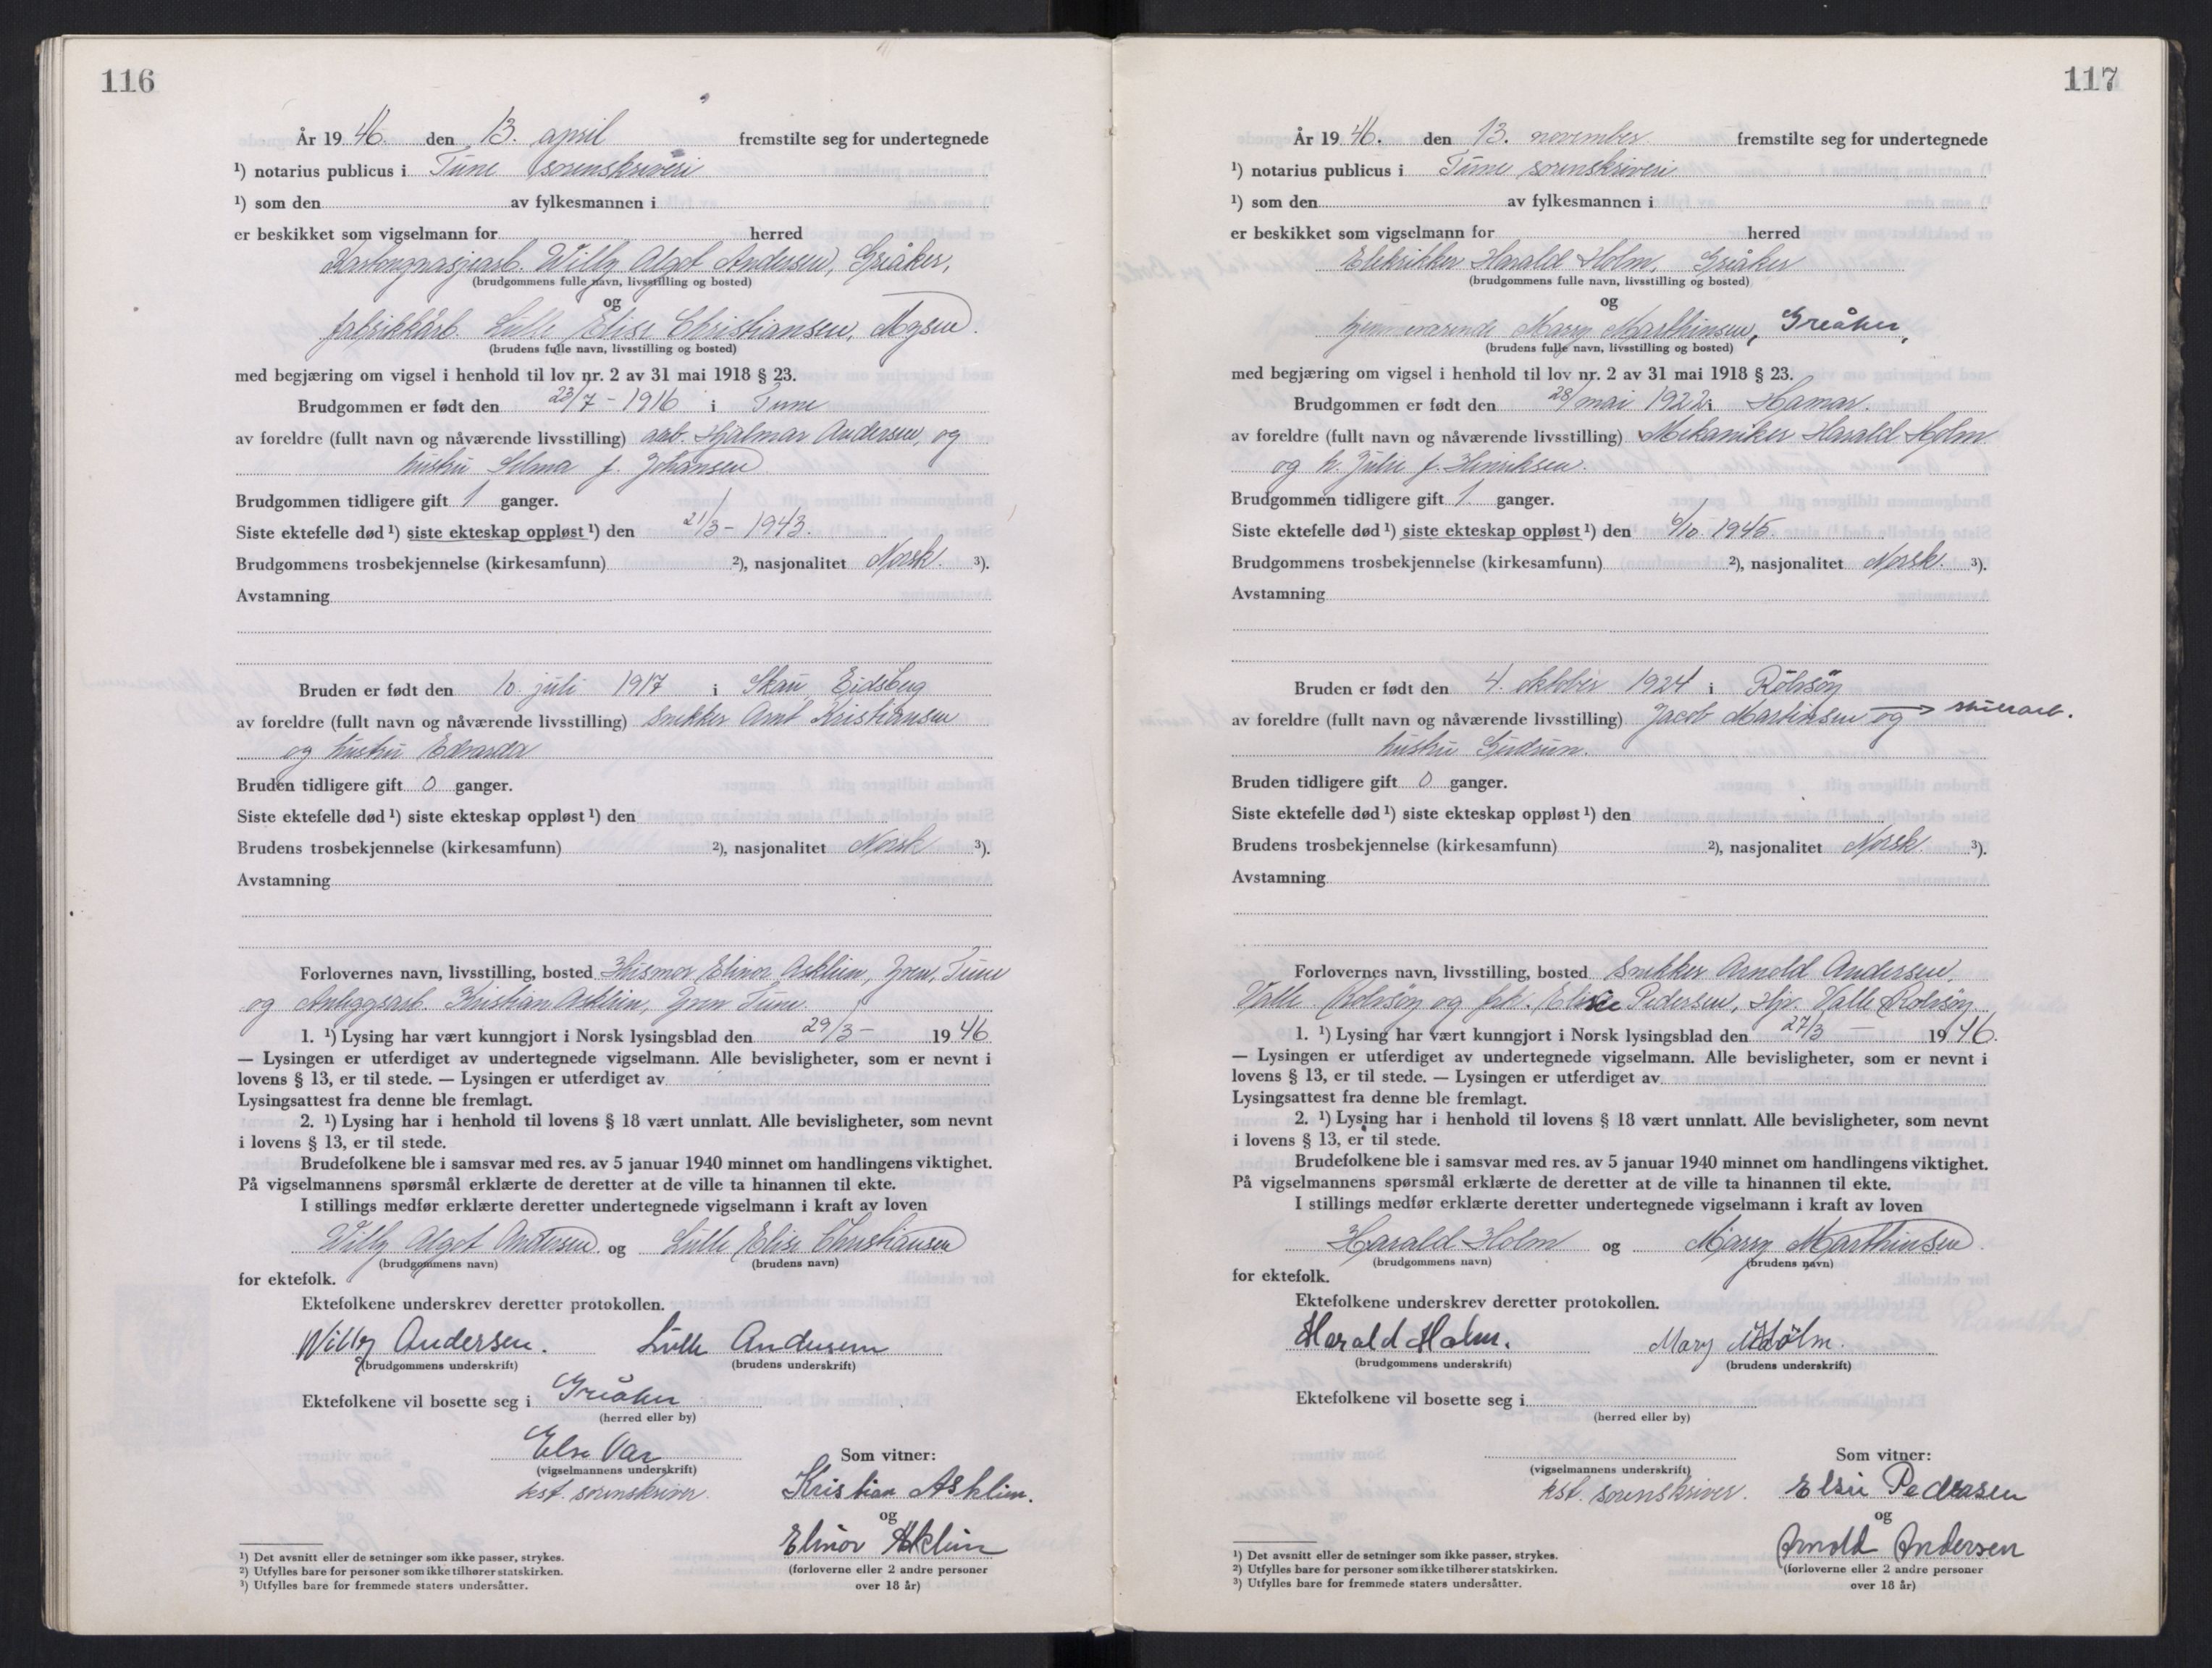 116
År 19 46. den 13. april fremstilte seg for undertegnede
¹) notarius publicus i Tune sorenskriveri
¹) som den av fylkesmannen i
er beskikket som vigselmann for herred
Willy Algot Andersen, Greåker,
(brudgommens fulle navn, livsstilling og bosted)
og
fabrikkarb. Lulle Elise Christiansen, Mysen.
(brudens fulle navn, livsstilling og bosted)
med begjæring om vigsel i henhold til lov nr. 2 av 31 mai 1918 § 23.
Brudgommen er født den 23/7 - 1916 i Tune
av foreldre (fullt navn og nåværende livsstilling) arb. Hjalmar Andersen, og
hustru Selma f. Johansen
Brudgommen tidligere gift 1 ganger.
Siste ektefelle død ¹) siste ekteskap oppløst ¹) den 21/3 - 1943.
Brudgommens trosbekjennelse (kirkesamfunn) ²), nasjonalitet Norsk. ³).
Avstamning
Bruden er født den 10. juli 1917 i Skau, Eidsberg
av foreldre (fullt navn og nåværende livsstilling) snekker Arnt Kristiansen
og hustru Edvarda
Bruden tidligere gift 0 ganger.
Siste ektefelle død ¹) siste ekteskap oppløst ¹) den
Brudens trosbekjennelse (kirkesamfunn) ²), nasjonalitet Norsk ³).
Avstamning
Forlovernes navn, livsstilling, bosted Husmor Elinor Asklim, Yven, Tune
og Anleggsarb. Kristian Asklim, Yven Tune.
1. ¹) Lysing har vært kunngjort i Norsk lysingsblad den 29/3 - 19 46
— Lysingen er utferdiget av undertegnede vigselmann. Alle bevisligheter, som er nevnt i
lovens § 13, er til stede. — Lysingen er utferdiget av
Lysingsattest fra denne ble fremlagt.
2. ¹) Lysing har i henhold til lovens § 18 vært unnlatt. Alle bevisligheter, som nevnt
i lovens § 13, er til stede.
Brudefolkene ble i samsvar med res. av 5 januar 1940 minnet om handlingens viktighet.
På vigselmannens spørsmål erklærte de deretter at de ville ta hinannen til ekte.
I stillings medfør erklærte deretter undertegnede vigselmann i kraft av loven
Willy Algot Andersen og Lulle Elise Christiansen
(brudgommens navn) (brudens navn)
for ektefolk.
Ektefolkene underskrev deretter protokollen.
Willy Andersen. Lulle Andersen
(brudgommens underskrift) (brudens underskrift)
Ektefolkene vil bosette seg i Greåker
(herred eller by)
Else Var Som vitner:
(vigselmannens underskrift)
kst. sorenskriver. Kristian Asklim.
og
Elinor Asklim
(forloverne eller 2 andre personer
over 18 år)
¹) Det avsnitt eller de setninger som ikke passer, strykes.
²) Utfylles bare for personer som ikke tilhører statskirken.
³) Utfylles bare for fremmede staters undersåtter.
117
År 19 46. den 13. november fremstilte seg for undertegnede
¹) notarius publicus i Tune sorenskriveri
¹) som den av fylkesmannen i
er beskikket som vigselmann for herred
Elektrikker Harald Holm, Greåker
(brudgommens fulle navn, livsstilling og bosted)
og
hjemmeværende Marry Marthinsen, Greåker,
(brudens fulle navn, livsstilling og bosted)
med begjæring om vigsel i henhold til lov nr. 2 av 31 mai 1918 § 23.
Brudgommen er født den 28/ mai 1922 i Hamar.
av foreldre (fullt navn og nåværende livsstilling) Mekaniker Harald Holm
og h. Julie f. Henriksen.
Brudgommen tidligere gift 1 ganger.
Siste ektefelle død ¹) siste ekteskap oppløst ¹) den 6/10. 1945.
Brudgommens trosbekjennelse (kirkesamfunn) ²), nasjonalitet Norsk. ³).
Avstamning
Bruden er født den 4. oktober 1924 i Rolvsøy
av foreldre (fullt navn og nåværende livsstilling) Jacob Martinsen og → skurarb.
hustru Gudrun.
Bruden tidligere gift 0 ganger.
Siste ektefelle død ¹) siste ekteskap oppløst ¹) den
Brudens trosbekjennelse (kirkesamfunn) ²), nasjonalitet Norsk. ³).
Avstamning
Forlovernes navn, livsstilling, bosted snekker Arnold Andersen,
Valle Rolvsøy og frk. Elsie Pedersen, Hjv. Valle Rolvsøy
1. ¹) Lysing har vært kunngjort i Norsk lysingsblad den 27/3 — 19 46.
— Lysingen er utferdiget av undertegnede vigselmann. Alle bevisligheter, som er nevnt i
lovens § 13, er til stede. — Lysingen er utferdiget av
Lysingsattest fra denne ble fremlagt.
2. ¹) Lysing har i henhold til lovens § 18 vært unnlatt. Alle bevisligheter, som nevnt
i lovens § 13, er til stede.
Brudefolkene ble i samsvar med res. av 5 januar 1940 minnet om handlingens viktighet.
På vigselmannens spørsmål erklærte de deretter at de ville ta hinannen til ekte.
I stillings medfør erklærte deretter undertegnede vigselmann i kraft av loven
Harald Holm og Marry Marthinsen
(brudgommens navn) (brudens navn)
for ektefolk.
Ektefolkene underskrev deretter protokollen.
Harald Holm. Mary Holm.
(brudgommens underskrift) (brudens underskrift)
Ektefolkene vil bosette seg i
(herred eller by)
Som vitner:
(vigselmannens underskrift)
kst. sorenskriver. Elsie Pedersen
og
Arnold Andersen
(forloverne eller 2 andre personer
over 18 år)
¹) Det avsnitt eller de setninger som ikke passer, strykes.
²) Utfylles bare for personer som ikke tilhører statskirken.
³) Utfylles bare for fremmede staters undersåtter.